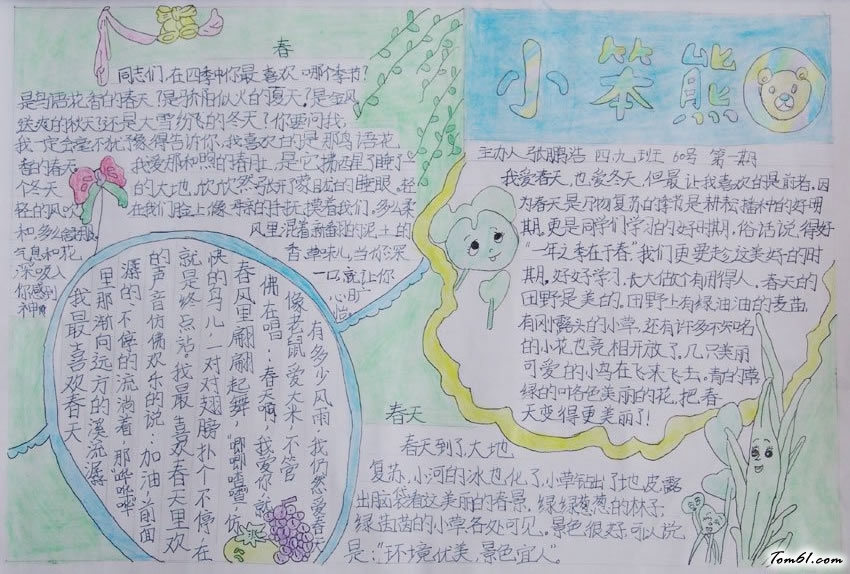 小笨熊
主办人张鹏浩 四、九班 60号 第一期
春
同志们,在四季中你最喜欢哪个季节?
是鸟语花香的春天?是骄阳似火的夏天?是金风
送爽的秋天?还是大雪纷飞的冬天?你要问我,
我一定会毫不犹豫得告诉你,我喜欢的是那鸟语花
香的春天。我爱那和煦的春阳,是它抚
个冬天的大地,欣欣然张开朦胧的睡眼,轻
轻的风吹在我们脸上,像母亲的手抚摸着我们,多么柔
和多么舒服,风里混着新翻的泥土的
气息和花香,草味儿,当你深
深吸入一口,就让你
你感到心旷
神怡
有多少风雨,我仍然爱春天,
像老鼠爱大米,不管
佛在唱:春天啊,我爱你,就
春风里翩翩起舞,“唧唧喳喳”,仿
快的鸟儿一对对翅膀扑个不停,在
就是终点站。我最喜欢春天里欢
的声音仿佛欢乐的说:加油,前面
潺的不停的流淌着,那“哗哗哗”
里那渐向远方的溪流,潺
我最喜欢春天
我爱春天,也爱冬天,但最让我喜欢的是前者,因
为春天是万物复苏的季节,是耕耘播种的好时
期,更是同学们学习的好时期,俗话说得好
“一年之季在于春”我们更要趁这美好的时
期,好好学习,长大做个有用得人。春天的
田野是美的,田野上有绿油油的麦苗,
有刚露头的小草,还有许多不知名
的小花也竞相开放了,几只美丽
可爱的小鸟在飞来飞去,青的草,
绿的叶,各色美丽的花,把春
天变得更美丽了!
春天
春天到了,大地
复苏,小河的冰也化了,小草钻出了地皮,露
出脑袋看这美丽的春景,绿绿葱葱的林子,
绿茵茵的小草,各处可见。景色很好,可以说
是:“环境优美,景色宜人”。
Tom61.com